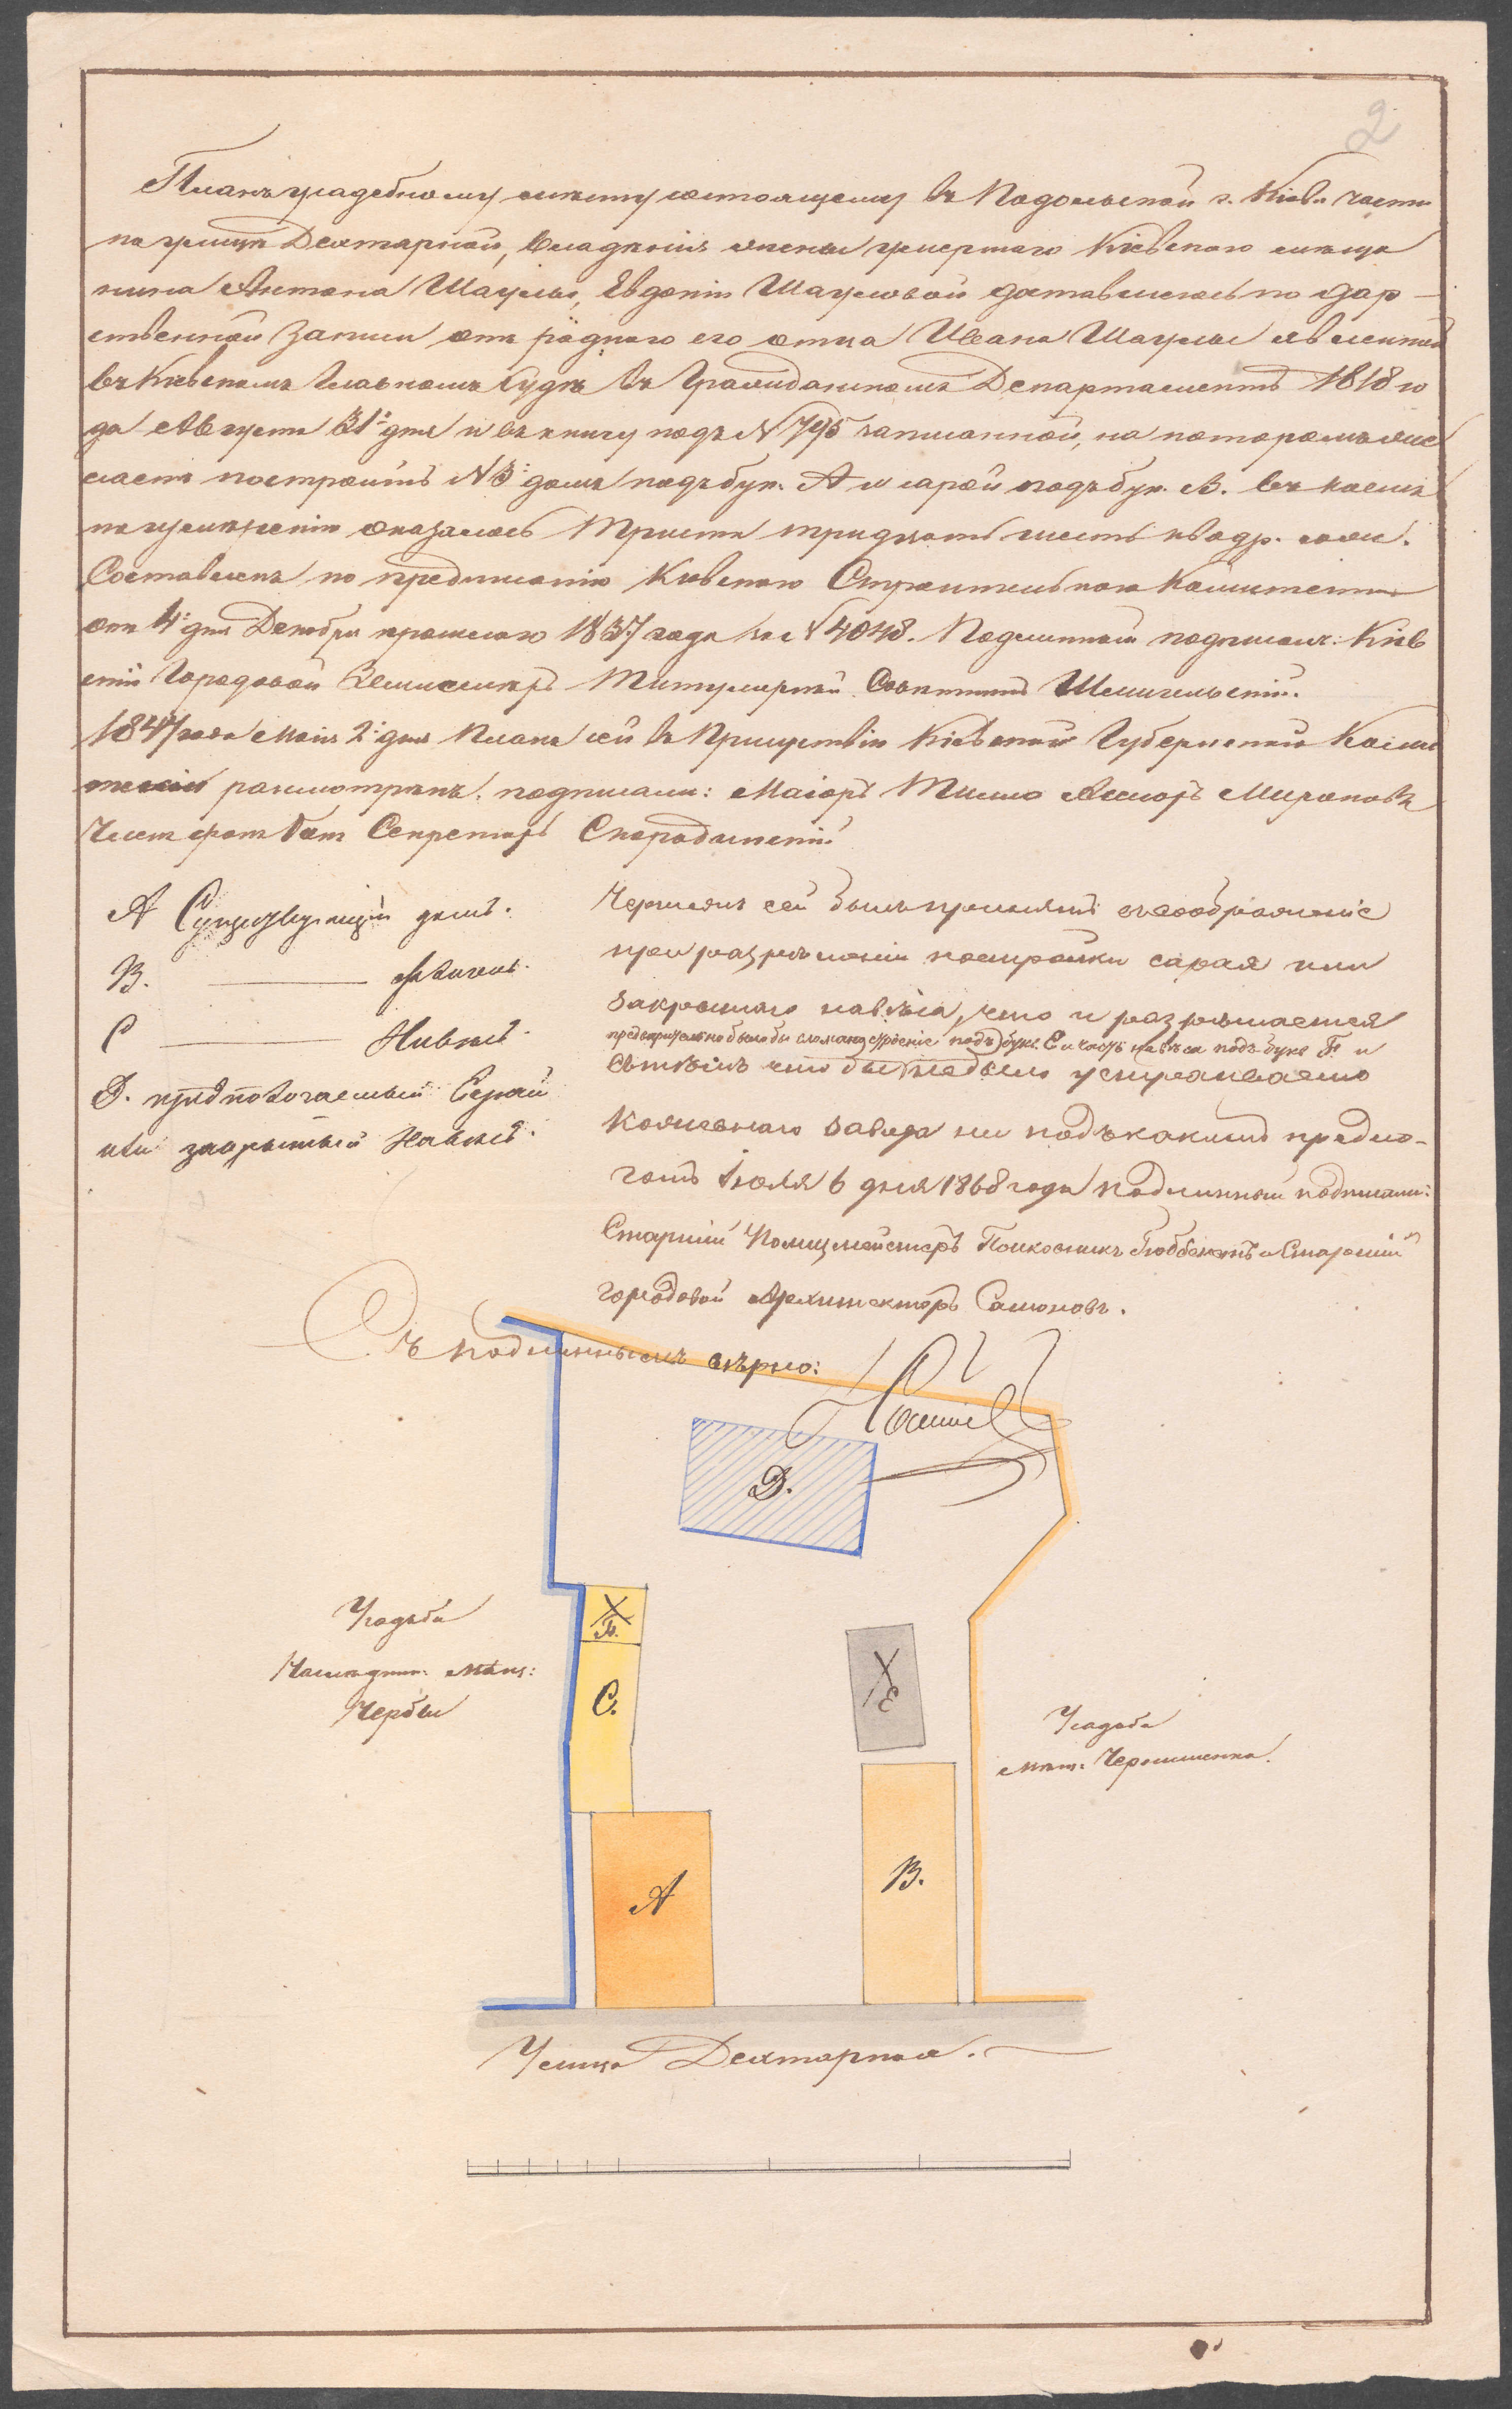 2
Планъ усадебному мѣсту состоящему въ Подольской г. Кіева части
по улицѣ Дехтярной, владѣнія жены умершаго Кіевскаго мѣща
нина Антона Шаулы, Евдокіи Шауловой доставшагось по дар-
ственной записи отъ роднаго его отца Ивана Шаулы явленной
въ Кіевскомъ Главномъ Судѣ въ Гражданскомъ Департаментѣ 1818 го
да Августа 31 дня и въ книгу подъ N 795 записанной, на которомъ же
лаетъ построить N 3 домъ подъ бук. А и сарай подъ бук. В. въ коемъ
по измѣренію оказалось триста тридцать шесть квадр. саж.
Составленъ по предписанію Кіевскаго Строительнаго Комитета
отъ 4 дня Декабря прошлаго 1837 года за N 4048. Подлинный подписалъ: Кіев
скій Городовой Землемѣръ Титулярный Совѣтникъ Шмигельскій.
1847 года Маія 2 дня планъ сей въ присутствіи Кіевской Губернской Коми
расмотрѣнъ. подписали: Маіоръ Тимо Асесоръ Мироновъ
Секретарь Скородинскій
А Существующій домъ.
В. — Флигель.
С — Навѣсъ.
D. предпологаемый Сарай
или закрытый Навѣсъ.
Чертежъ сей былъ принятъ въ соображеніе
при разрѣшеніи постройки сарая или
закрытаго навѣса, что и разрѣшается
предварительно было бы сломано строеніе подъ букв. Е и часть навѣса подъ букв F. и
съ тѣмъ что бы не было устраиваемо
кожевнаго завода ни подъ какимъ предло-
гомъ Іюля 6 дня 1868 года подлинный подписали:
Старшій Полицмейстеръ Полковникъ Гюббенетъ и Старшій
городовой Архитекторъ Самоновъ.
Съ подлиннымъ вѣрно:
D.
F.
С.
Е
А
В.
Усадьба
Наслѣдник. мѣщ:
Чербы
Усадьба
мѣщ.
Улица Дехтярная.